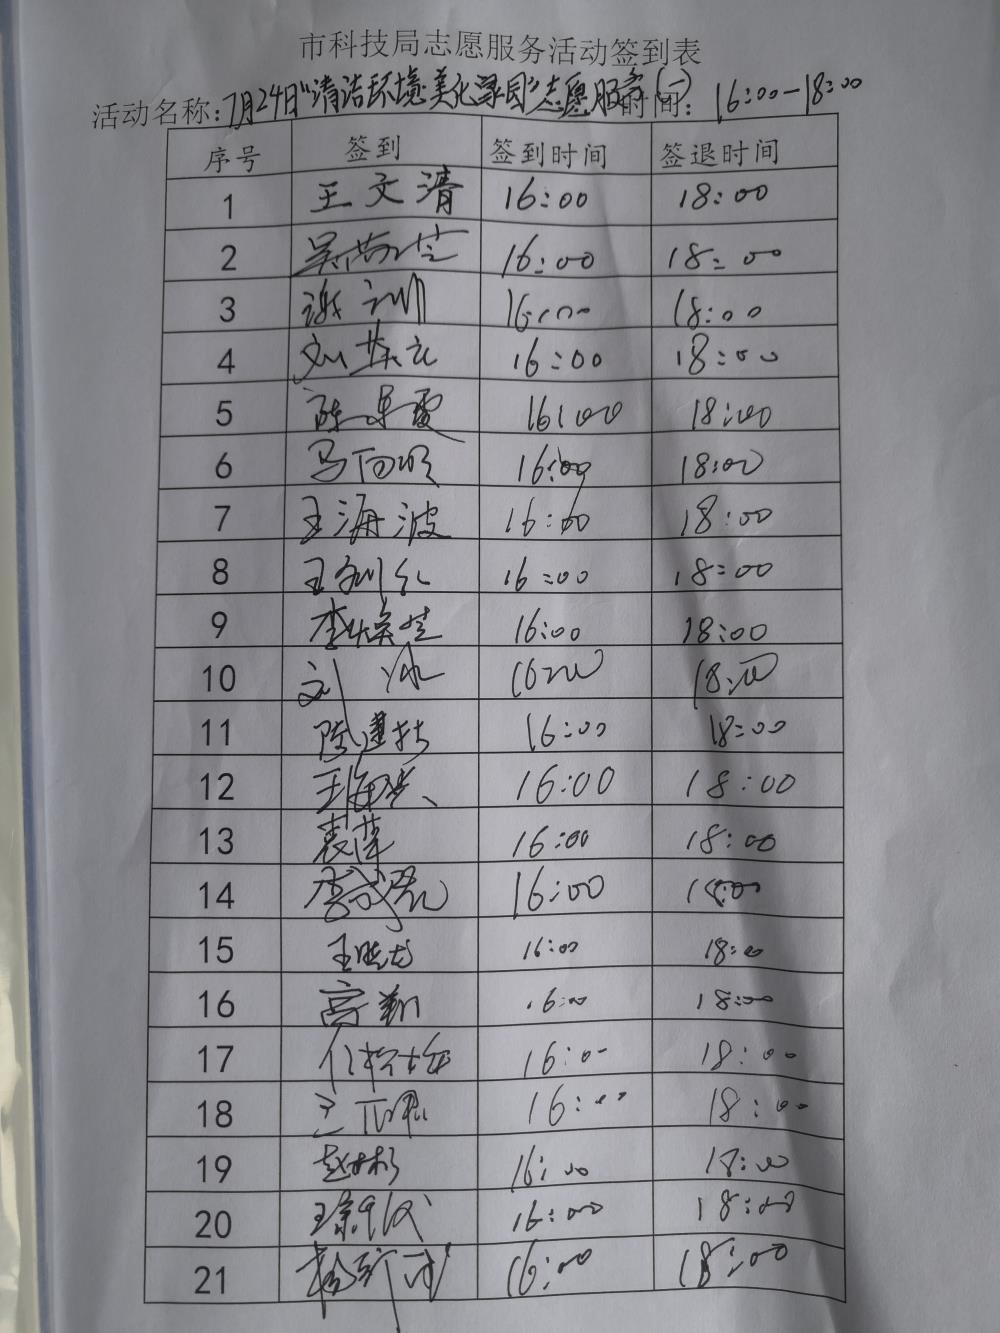 市科技局志愿服务活动签到表
活动名称:7月24日"清洁环境,美化家园"志愿服务(一) 时间: 16:00-18:00
序号 签到 签到时间 签退时间
1 王文清 16:00 18:00
2 16:00 18:00
3 谢 16:00 18:00
4 刘 16:00 18:00
5 陈 16:00 18:00
6 马 16:00 18:00
7 王海波 16:00 18:00
8 王 16:00 18:00
9 李焕芝 16:00 18:00
10 刘冰 16:00 18:00
11 陈建 16:00 18:00
12 王海 16:00 18:00
13 袁萍 16:00 18:00
14 李 16:00 18:00
15 王晓龙 16:00 18:00
16 高翔 16:00 18:00
17 16:00 18:00
18 16:00 18:00
19 赵彬 16:00 18:00
20 王 16:00 18:00
21 16:00 18:00